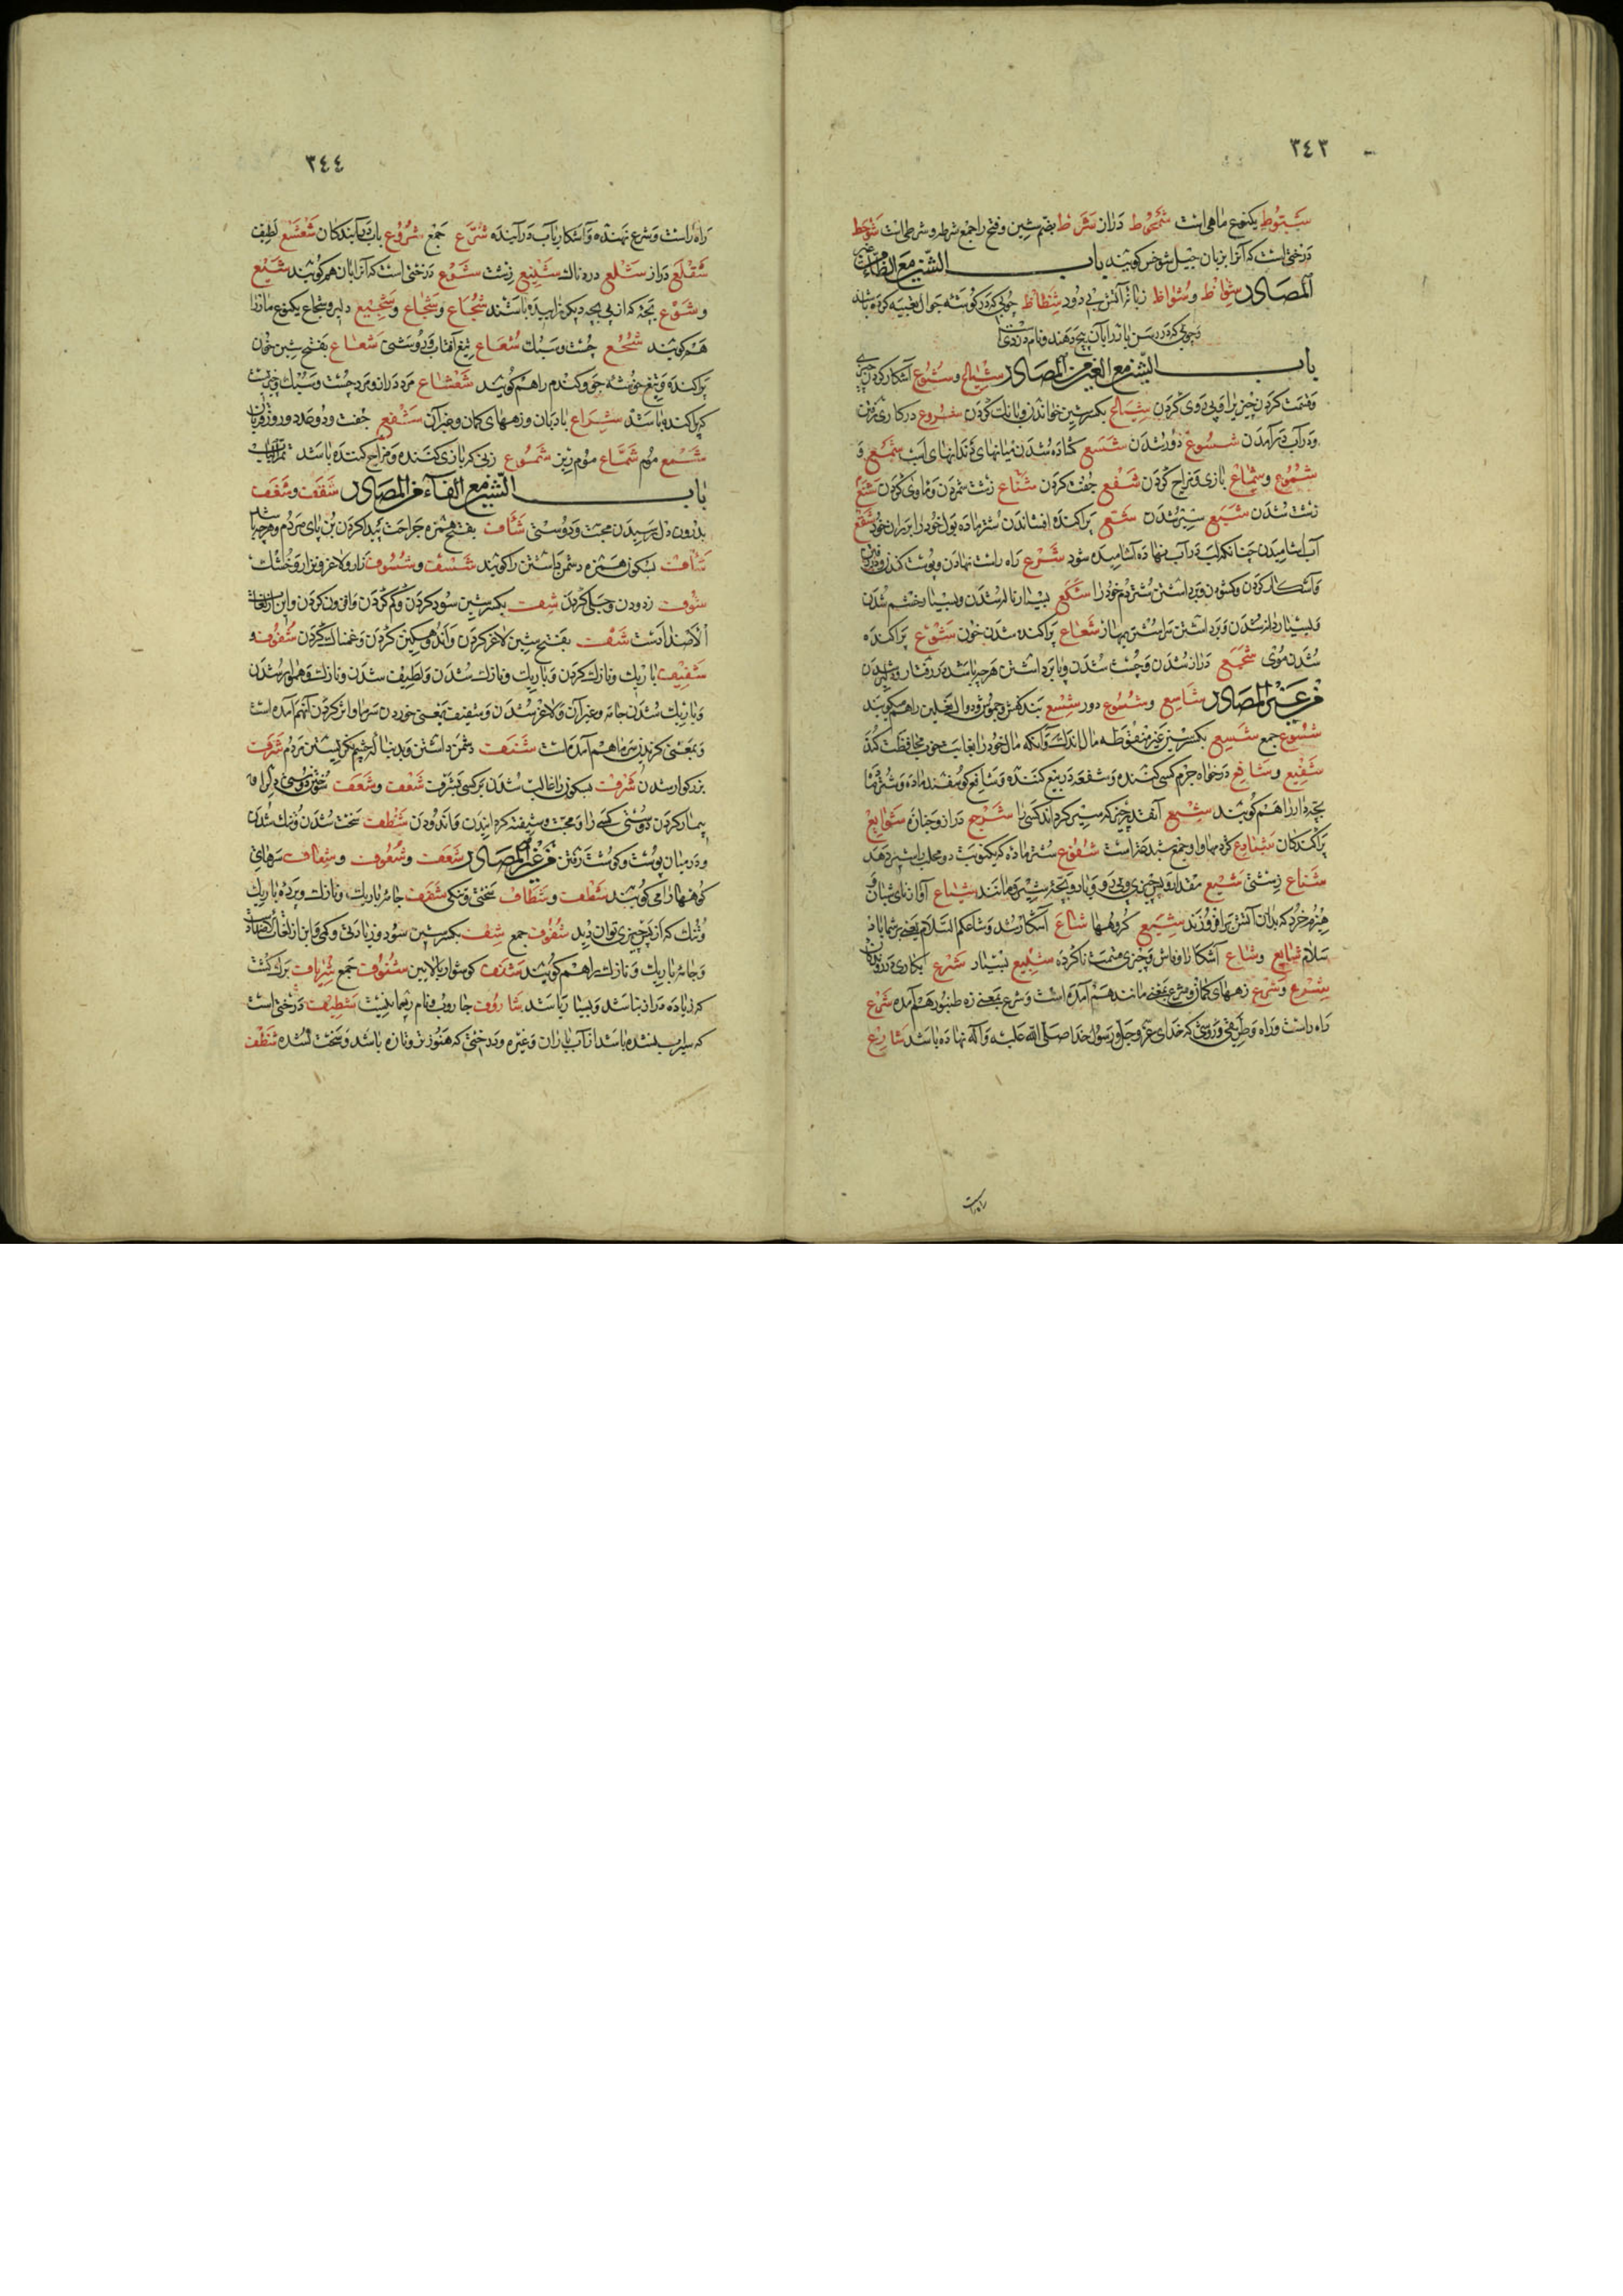 ٣٤٣
شبوط یکنوع ماهی است شمحوط دراز شرط بضم شین و فتح را جمع شرطه و شرطی است شوحط
درختی است که آنرا بزبان جیل شوخس کویند باب الشین مع الظاء من غیر
المصادر شواظ و شواظ زبانه آتش بی دود شظاظ چوبی که در کوشه جوال تعبیه کرده باشند
و چوبی که در رسن باندرا بآن پیچ دهند و نام دزدی است
باب الشین مع العین من المصادر شیاع و شیوع آشکار کردن
و قسمت کردن چیزی را و پی روی کردن شیاع بکسر شین خواندن و بانک کردن شروع در کاری رفتن
و در آب درآمدن شسوع دور شدن شسع کشاده شدن میانهای دندانهای اسب شمع و
شموع و شماع بازی و مزاح کردن شفع جفت کردن شناع زشت شمردن و رسوا کردن شنع
زشت شدن شبع سیر شدن شع پراکنده افشاندن شتر ماده بول خود را بر رانهای خود شقع
آب آشامیدن چنانکه لب در آب نهاده آشامیده شود شرع راه راست نهادن و پوست کندن
و آشکار کردن و کشودن و برداشتن شتر دم خود را شکع بسیار نالیدن و بسیار خشم شدن
و بسیار دانه شدن شعاع پراکنده شدن خون شوع پراکنده
شدن موی شجع دراز شدن و چست شدن و پا برداشتن هرچه باشد در رفتار و دلیر شدن
من غیر المصادر شاسع و شسوع دور شسع بند کفش و دوال نعلین را هم کویند
شسوع جمع شسع بکسر شین غیر منقوطه مال اندک و آنکه مال خود را بغایت خوب محافظت کند
شفیع و شافع درخواه جرم کسی کننده و شفعه دربیع کننده و شافع کوسفند ماده و شتر ماده
بچه دار را هم کویند شبع آنقدر چیز که سیر کرداند کسی را شرجع دراز و جنازه شوایع
پراکندکان
شناع زشتی شیع مقدار و پس چیزی و پی رو و یار و بچه شیر و مانند شیاع آواز نای شبان و
هیزم خرد که بدان آتش برافروزند شیع کروهها شاع آشکار شد و شاعکم السلام یعنی بر شما باد
سلام شایع و شاع آشکارا و فاش و چیزی قسمت ناکرده شلیع بسیار شرع یکباری در رودن
شرع و شرع زههای کمان و شرع بمعنی مانند هم آمده است و شرع بمعنی زه طنبور هم آمده شرع
راه راست و راه و طریقی و روشی که خدای عز و جل و رسول خدا صلی الله علیه و آله نهاده باشد شارع
راه راست
٣٤٤
راه راست و شرع نهنده و آشکار و بآب درآینده شرع جمع شروع بآب درآیندکان شعشع لطیف
شقلع دراز شلع دردناک شنیع زشت شوع درختی است که آنرا بان هم کویند شیع
و شوع بچه که از پی بچه دیکر زاییده باشند شجاع و شجاع و شجیع دلیر و شجاع یکنوع مار را
هم کویند شعشع چست و سبک شعاع تیغ آفتاب و روشنی شعاع بفتح شین خون
پراکنده و تیغ خوشه جو و کندم را هم کویند شعشاع مرد دراز و مرد چست و سبک و چیزی
که پراکنده باشد شراع بادبان و زههای کمان و غیر آن شفع جفت و دو عدد و روز قربان
شمع موم شماع موم ریز شموع زنی که بازی کننده و مزاح کننده باشد
باب الشین مع الفاء من المصادر شغف و شعف
بدرون دل رسیدن محبت و دوستی شأف بفتح همزه جراحت پیدا کردن بن پای مردم و هرچه باشد
شأف بسکون همزه دشمن داشتن را کویند شسف و شسوف زار و لاغر و نزار و خشک
شوف زدودن و جلی کردن شف بکسر شین سود کردن و کم کردن و افزون کردن و این از لغات
الاضداد است شف بفتح شین لاغر کردن و اندوهکین کردن و غمناک کردن شفوف و
شفیف باریک و نازک کردن و باریک و نازک شدن و لطیف شدن و نازک و هموار شدن
و باریک شدن جامه و غیر آن و لاغر شدن و شفیف بمعنی خوردن سرما و اثر کردن آنهم آمده است
و بمعنی کزیدن سرما هم آمده است شنف دشمن داشتن و بدنباله چشم نکریستن مردم شرف
بزرکوار شدن شرف بسکون را غالب شدن بر کسی بشرف شعف و شعف سوختن دوستی دل را و
بیمار کردن دوستی کسی را و محبت و شیفته کردانیدن و اندودن شظف سخت شدن و تنک شدن
و در میان پوست و کوشت رفتن من غیر المصادر شعف و شعوف و شعاف سرهای
کوهها را می کویند شظف و شظاف سختی و تنکی شفف جامه باریک و نازک و پرده باریک
و تنک که از پس چیزی توان دید شفوف جمع شف بکسر شین سود و زیادتی و کمی و این از لغات اضداد است
و جامه باریک و نازک را هم کویند شنف کوشوار بالایین شنوف جمع شریاف برک کشت
که زیاده دراز باشد و بسیار باشد شاروف جاروب و نام رییما نیست شطیف درختی است
که سیراب نشده باشد از آب باران و غیره و درختی که هنوز تر و تازه باشد و سخت نشده شظف